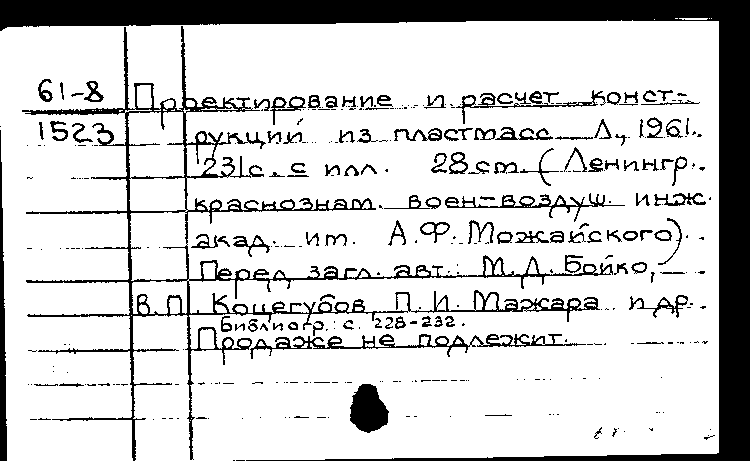 61-8 Проектирование и расчет конст-
1523 рукций из пластмасс. Л., 1961.
231с. с илл. 28cm. (Ленингр.
краснознам. воен-воздуш. инж.
акад. им. А.Ф. Можайского).
Перед загл. авт.: М.Д. Бойко,
В.П. Коцегубов, П.И. Мажара и др.
Библиогр.: с. 228-232.
Продаже не подлежит.